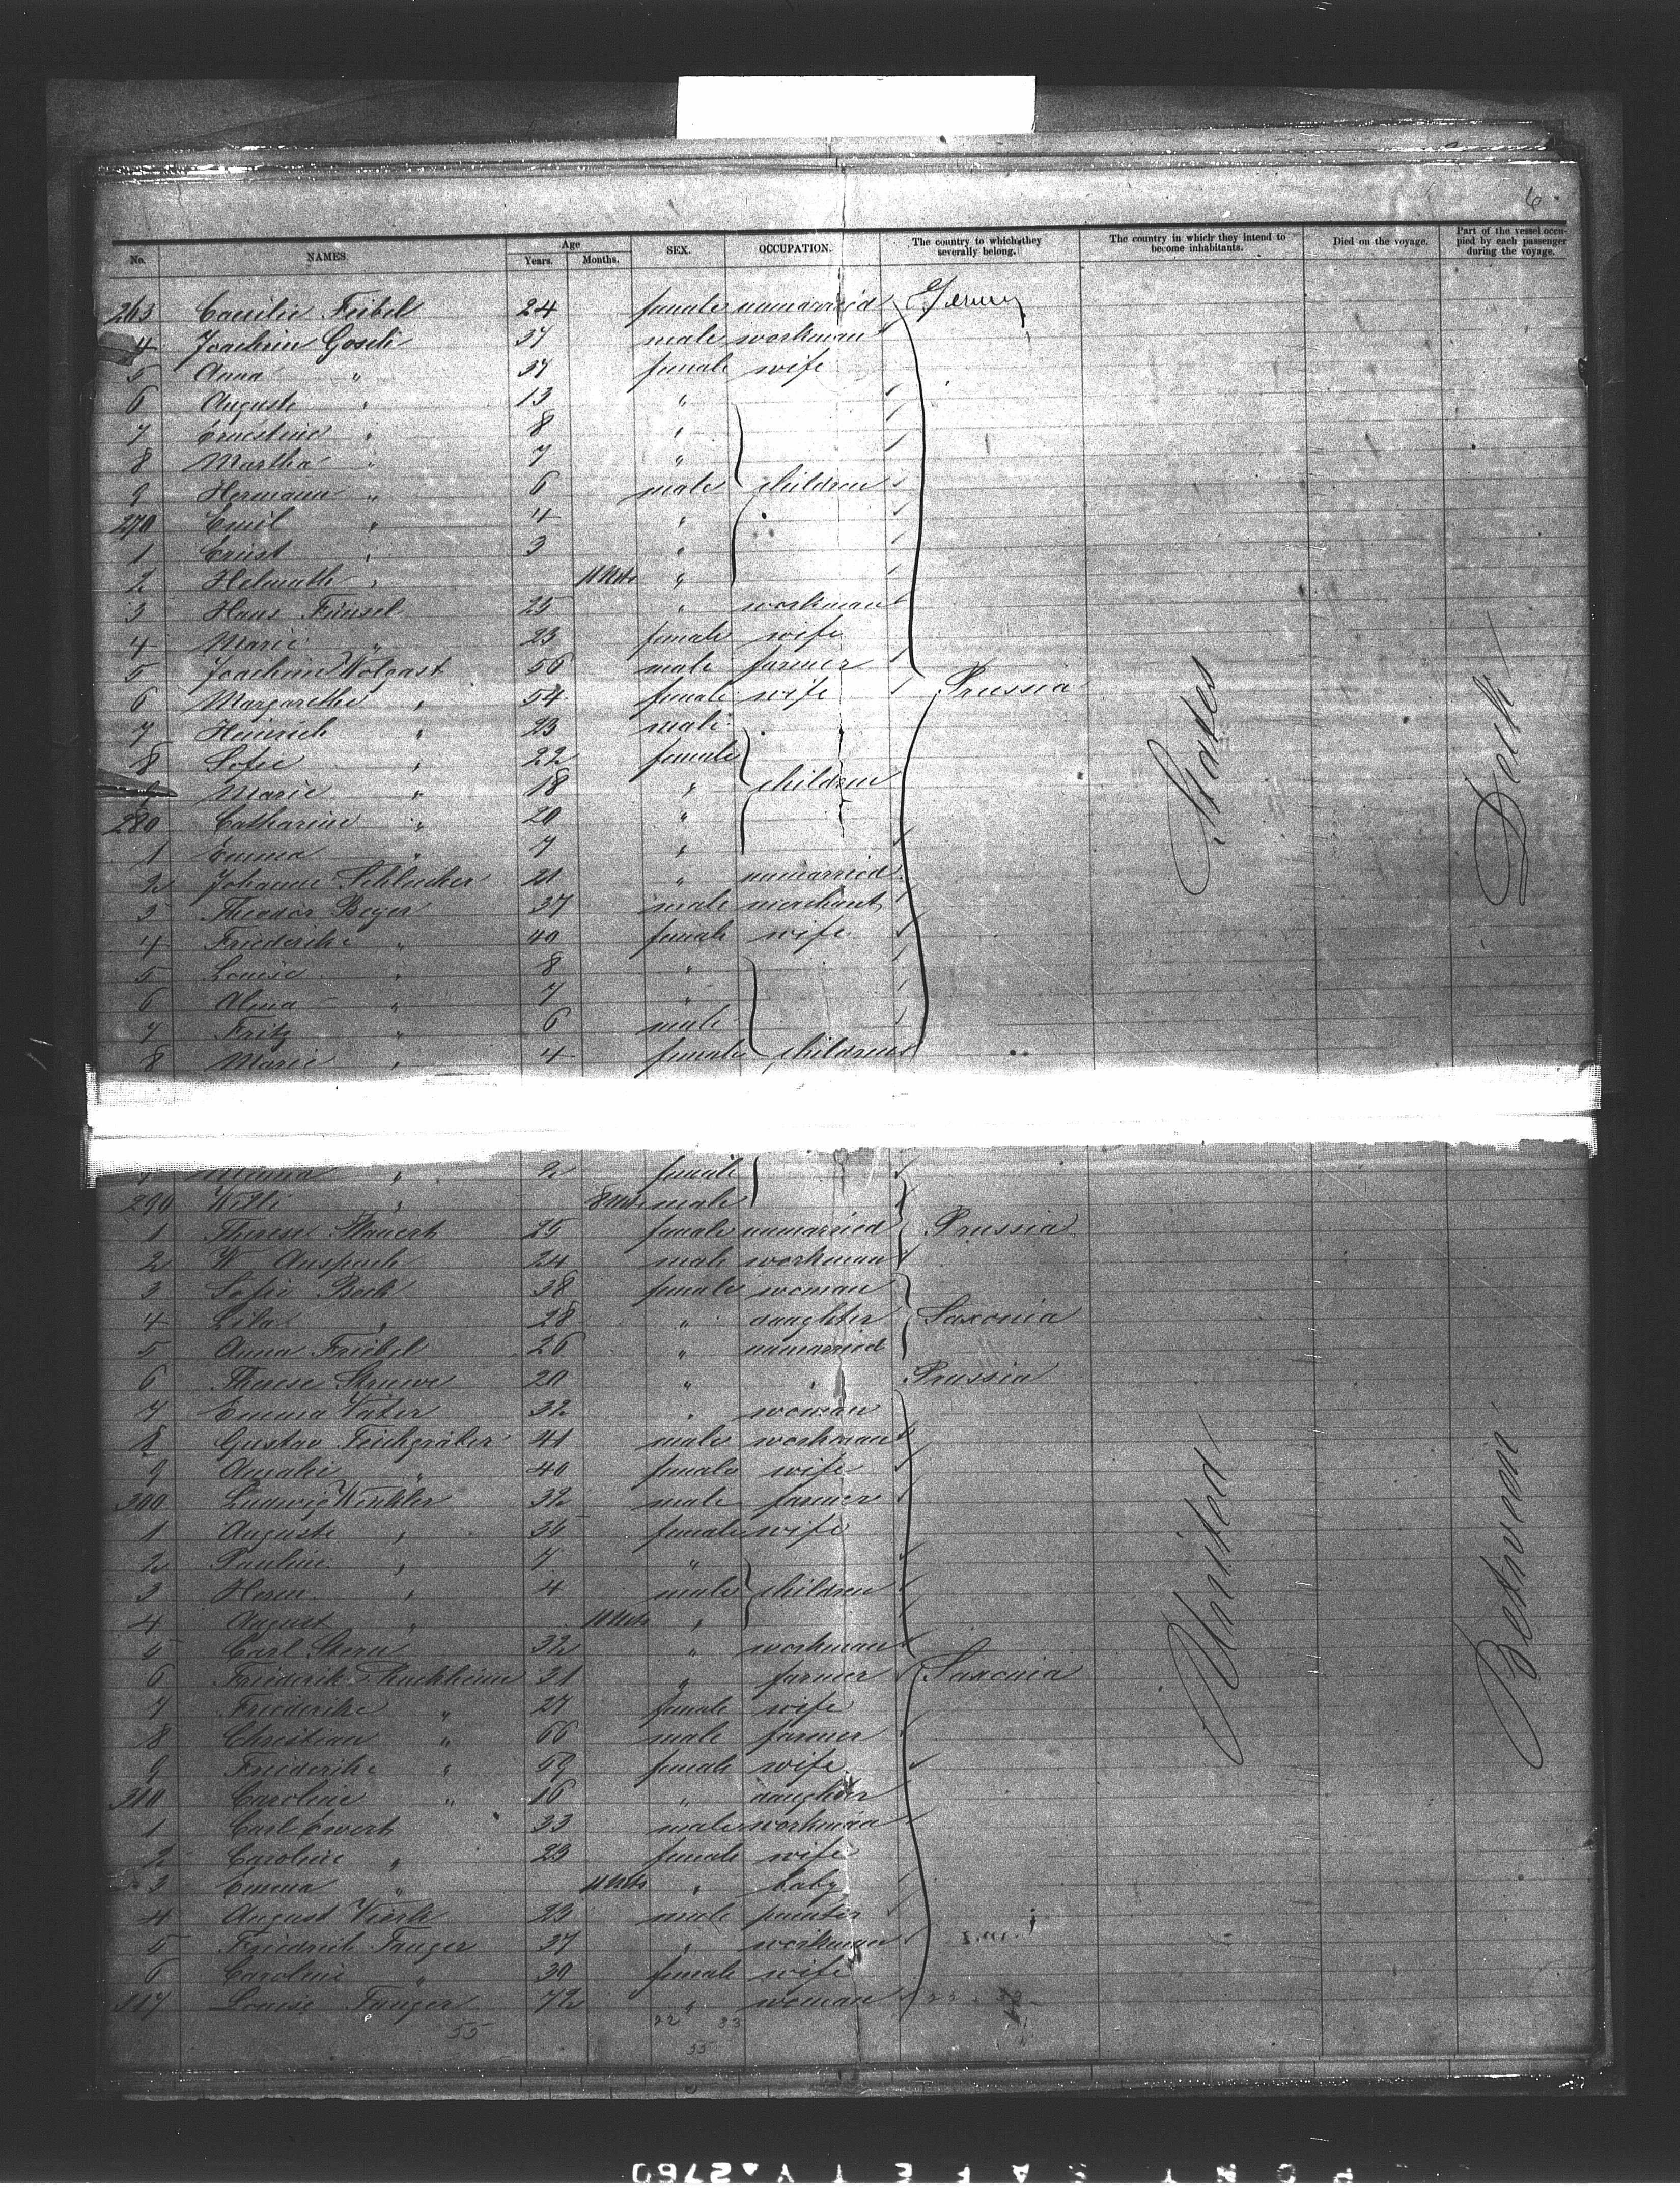 6
No. NAMES. Age Years. Months. SEX. OCCUPATION. The country to which they severally belong. The country in which they intend to become inhabitants. Died on the voyage. Part of the vessel occupied by each passenger during the voyage.
263 Caecilie Feibel 24 female unmarried
4 Joachim Gosch 37 male workman
5 Anna " 37 female wife
6 Auguste " 13 "
7 Ernestine " 8 "
8 Martha " 7 "
9 Hermann " 6 male children
270 Emil " 4 "
1 Ernst " 3 "
2 Helmuth " 11 Mts "
3 Hans 25 " workman
4 Marie " 23 female wife
5 Joachim Wolgast 56 male farmer
6 Margarethe " 54 female wife Prussia
7 Heinrich " 23 male
8 Sofie " 22 female
9 Marie " 18 " children
280 Catharine " 20 "
1 Emma " 7 "
2 Johanne 21 " unmarried
3 Theodor Beyer 37 male merchant
4 Friederike " 40 female wife
5 Louise " 8 "
6 Alma " 7 "
7 Fritz " 6 male
8 Marie " 4 female children
States
Deck
Minna " 2 female
290 Willi " 8 Mts male
1 Therese 25 female unmarried Prussia
2 W. Anspach 24 male workman
3 Sofie Bock 38 female woman
4 " 28 " daughter Saxonia
5 Anna Friebel 26 " unmarried
6 Therese Struwe 20 " " Prussia
7 Emma Vater 32 " woman
8 Gustav Teichgräber 41 male workman
9 Amalie " 40 female wife
300 Ludwig Winkler 32 male farmer
1 Auguste " 35 female wife
2 Pauline " 7 "
3 Herm. " 4 male children
4 August " 11 Mts "
5 Carl Stern 32 " workman
6 Friederik 31 " farmer Saxonia
7 Friederike " 27 female wife
8 Christian " 66 male farmer
9 Friederike " 59 female wife
310 Caroline " 16 " daughter
1 Carl Ewert 33 male workman
2 Caroline " 23 female wife
3 Emma " 11 Mts " baby
4 August 23 male painter
5 Friedrich 37 " workman
6 Caroline " 39 female wife
317 Louise 72 " woman
United
Between
55 22 33
55